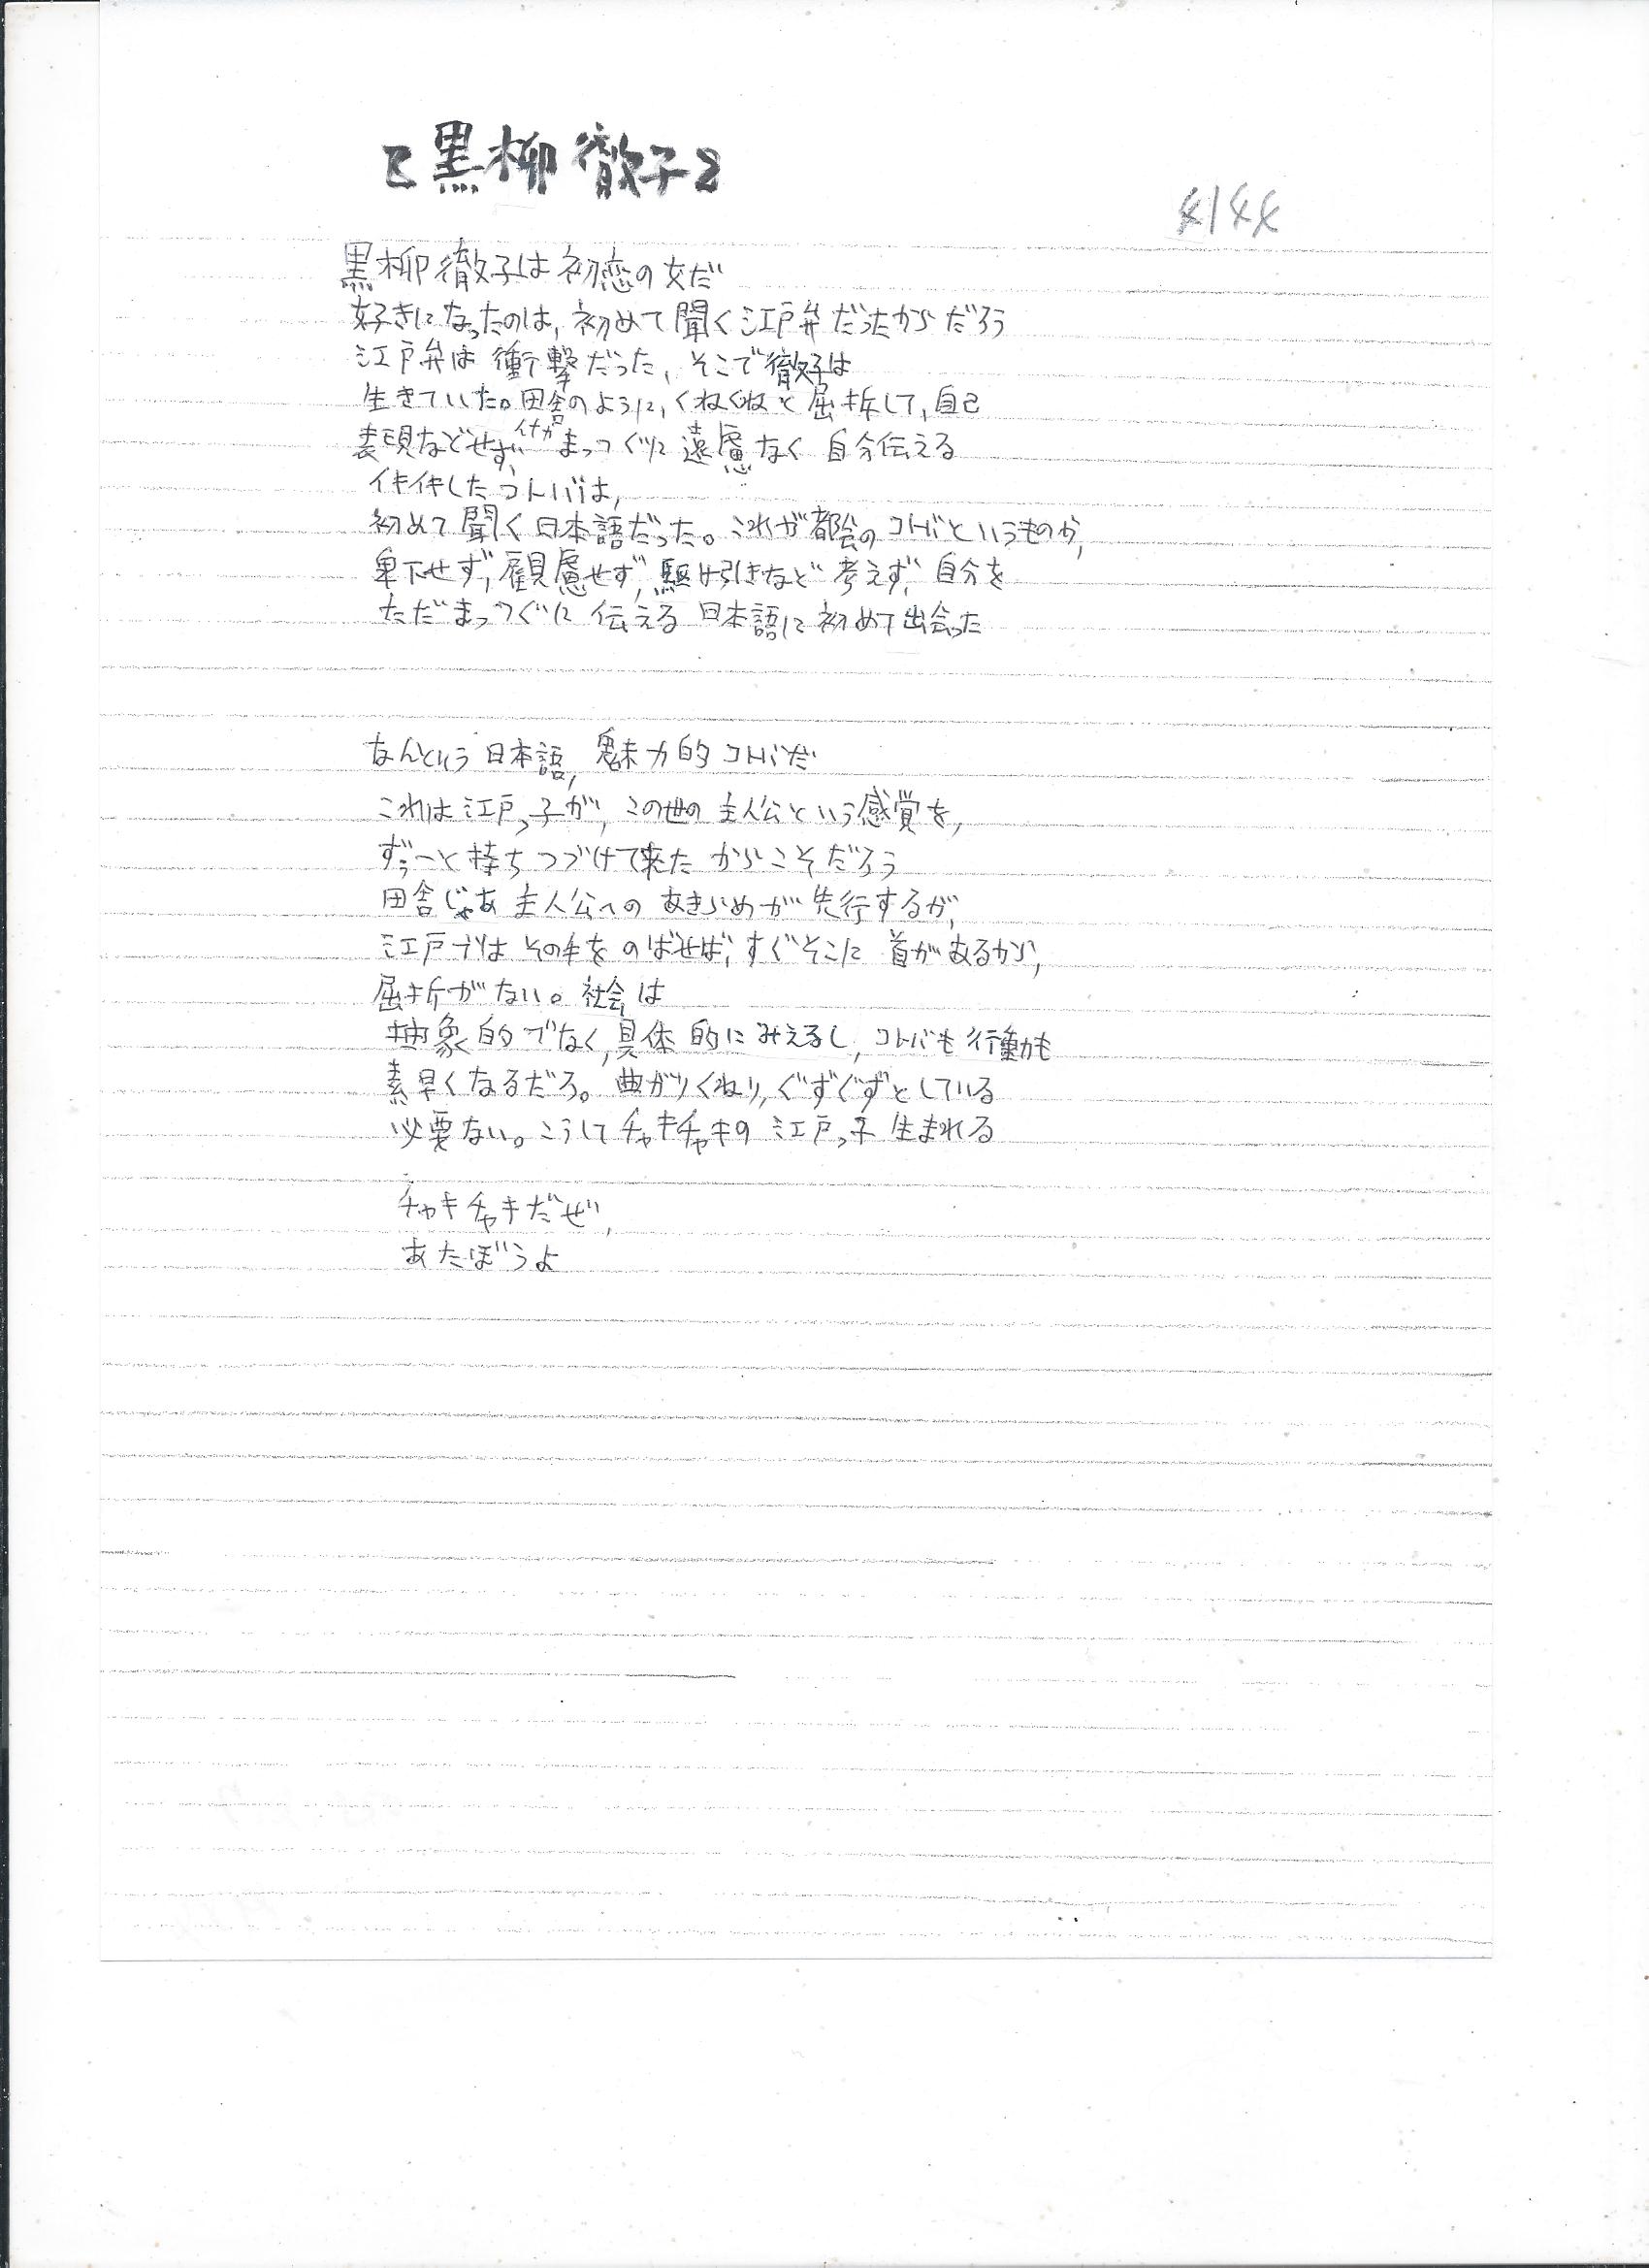 黒柳徹子
4144
黒柳徹子は初恋の女だ
好きになったのは、初めて聞く江戸弁だったからだろう
江戸弁は衝撃だった、そこで徹子は
生きていた。田舎のように、くねくねと屈折して、自己
表現などせず、まっつぐに遠慮なく自分伝える
イキイキしたコトバは、
初めて聞く日本語だった。これが都会のコトバというものか、
卑下せず、顧慮せず、駆け引きなど考えず、自分を
ただまっつぐに伝える日本語に初めて出会った
なんという日本語、魅力的コトバだ
これは江戸っ子が、この世の主人公という感覚を、
ずぅーと持ちつづけて来たからこそだろう
田舎じゃあ主人公へのあきらめが先行するが、
江戸ではその手をのばせば、すぐそこに首があるから、
屈折がない。社会は
抽象的でなく、具体的にみえるし、コトバも行動も
素早くなるだろ。曲がりくねり、ぐずぐずとしている
必要ない。こうしてチャキチャキの江戸っ子生まれる
チャキチャキだぜ、
あたぼうよ